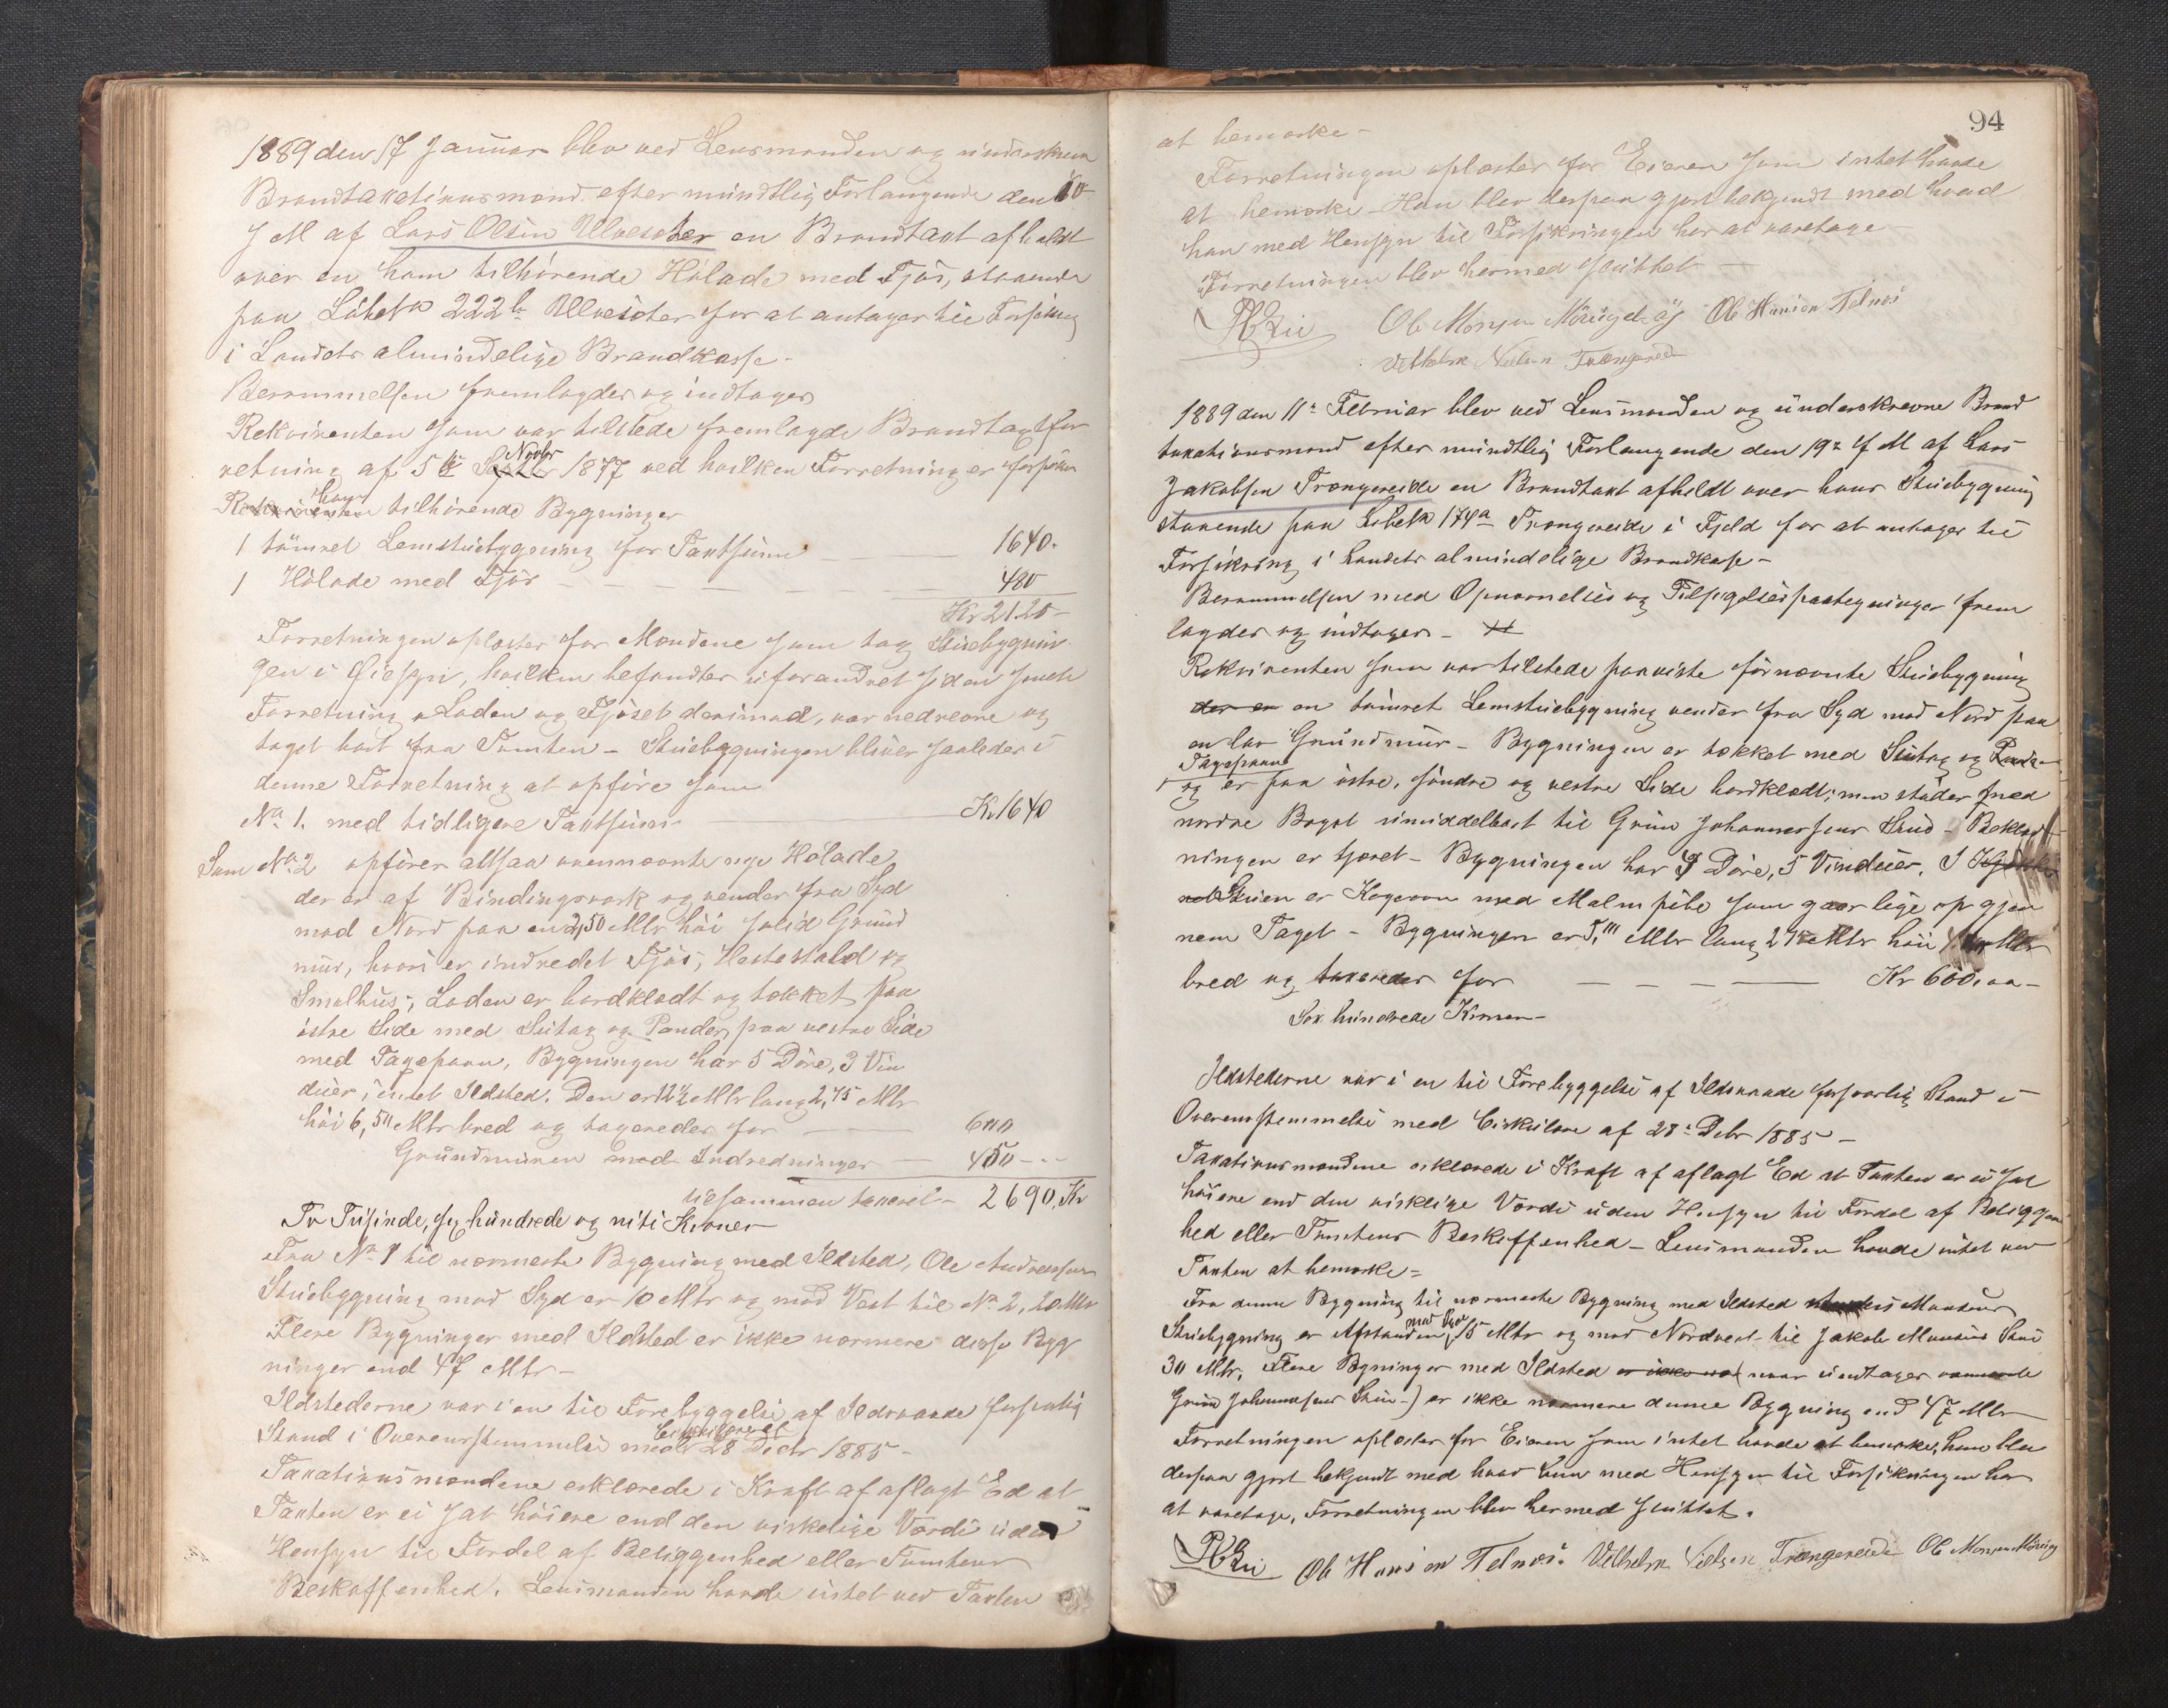 1889 den 17 Januar blev ved Lensmanden og underskrevn
Brandtaxationsmænd efter mundtlig Forlangende den 10
f M af Lars Olsen Ulveseter en Brandtaxt afholdt
over en ham tilhørende Hölade med Fjös, staaende
paa Löbe No 222 b Ulveseter for at antages til Forsikring
i Landets almindelige Brandkasse.
Berammelsen fremlagdes og indtages
Rekvirenten som var tilstede fremlagde Brandtaxtfor
retning af 5te Novbr 1877 ved hvilken Forretning er forsikr
ham tilhørende Bygninger
1 tömret Lemstuebygning for Taxtsum — 1640.
1 Hölade med Fjös — — — — — — 480
Kr 2120 -
Forretningen oplæstes for Mændene som tog Stuebygnin
gen i Øiesyn, hvilken befandtes uforandret siden sidste
Forretning Laden og Fjöset derimod, var nedrevne og
taget bort fra Tomten - Stuebygningen bliver saaledes i
denne Forretning at opföre som
No 1. med tidligere Taxtsum — Kr 1640
Som No 2 opföres altsaa ovennævnte nye Hölade
der er af Bindingsværk og vender fra Syd
mod Nord paa en 2,50 Mtr höi solid Grund
mur, hvori er indredet Fjös, Hestestald og
Smalhus; Laden er bordklædt og tækket paa
östre Side med Sutag og Pander, paa vestre Side
med Tagspaan, Bygningen har 5 Döre, 3 Vin
duer, intet Ildsted. Den er 12½ Mtr lang 2,75 Mtr
höi 6,50 Mtr bred og taxeredes for — 600
Grundmuren med Indredninger — 450 - -
tilsammen taxeret - 2690, Kr
To Tusinde, sex hundrede og niti Kroner
Fra No 1 til nærmeste Bygning med Ildsted, Ole Andersens
Stuebygning mod Syd er 10 Mtr og mod Vest til No 2, 20 Mtr
Flere Bygninger med Ildsted er ikke nærmere disse Byg
ninger end 47 Mtr -
Ildstederne var i en til Forebyggelse af Ildsvaade forsvarlig
Stand i Overensstemmelse med Cirkulæret 28 Decbr 1885 -
Taxationsmændene erklærede i Kraft af aflagt Ed at
Taxten er ei sat höiere end den virkelige Værdi uden
Hensyn til Fordel af Beliggenhed eller Tomtens
Beskaffenhed. Lensmanden havde intet ved Taxten
94
at bemærke -
Forretningen oplæstes for Eieren som intet havde
at bemærke - Han blev derpaa gjort bekjendt med hvad
han med Hensyn til Forsikringen har at varetage -
Forretningen blev hermed sluttet —
Ole Monsen Ole Hansen Telnæs
Vilhelm Nielsen Trængereide
1889 den 11te Februar blev ved Lensmanden og underskrevne Brand
taxationsmænd efter mundtlig Forlangende den 19de f M af Lars
Jakobsen Trængereide en Brandtaxt afholdt over hans Stuebygning
staaende paa Löbe No 174a Trængereide i Fjeld for at antages til
Forsikring i Landets almindelige Brandkasse -
Berammelsen med Opnævnelses og Tilsigelsespaategninger frem
lagdes og indtages -
Rekvirenten som var tilstede paaviste førnævnte Stuebygning
der er en tömret Lemstuebygning vender fra Syd mod Nord paa
en lav Grundmur - Bygningen er tækket med Sutag og
Tagspaan
og er paa östre, söndre og vestre Side bordklædt; men støder med
nordre Bygst umiddelbart til Grim Johannessens Stue - Beklæd
ningen er tjæret - Bygningen har 4 Döre, 5 Vinduer, I
Stuen er Kogeovn med Malmpibe som gaar lige op gjen
nem Taget - Bygningen er Mtr lang Mtr höi Mtr
bred og taxeredes for — — — — Kr 600,00 -
Sex hundrede Kroner -
Ildstederne var i en til Forebyggelse af Ildsvaade forsvarlig Stand i
Overensstemmelse med Cirkulære af 28de Debr 1885 -
Taxationsmændene erklærede i Kraft af aflagt Ed at Taxten er ei sat
höiere end den virklige Værdi uden Hensyn til Fordel af Beliggen
hed eller Tomtens Beskaffenhed - Lensmanden havde intet ved
Taxten at bemærke -
Fra denne Bygning til nærmeste Bygning med Ildsted Monsens
Stuebygning er Afstanden mod Syd 15 Mtr og mod Nordvest til Jakob Monsens Stue
30 Mtr. Flere Bygninger med Ildsted er ikke (naar undtages nævnte
Grim Johannesens Stue -) er ikke nærmere denne Bygning end 47 Mtr
Forretningen oplæstes for Eieren som intet havde at bemærke, han blev
derpaa gjort bekjendt med hvad han med Hensyn til Forsikringen har
at varetage, Forretningen blev hermed sluttet.
Ole Hansen Telnæs. Vilhelm Nielsen Trængereide Ole Monsen